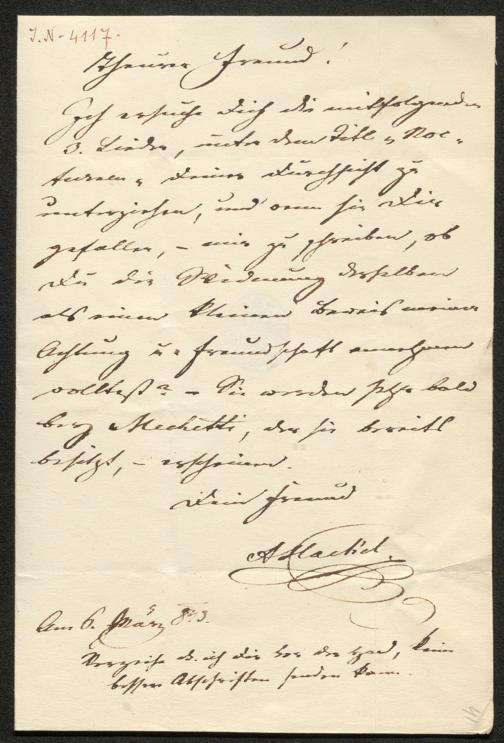 I.N. 4117.
Theurer Freund!
Ich ersuche Dich die mitfolgenden
3. Lieder, unter dem Titl „Noc-
turnen“ Deiner Durchsicht zu
unterziehen, und wenn sie Dir
gefallen, – mir zu schreiben, ob
Du die Widmung derselben
als einen kleinen Beweis meiner
Achtung u. Freundschaft annehmen
wolltest? – Sie werden sehr bald
bey Mechetti, der sie bereits
besitzt, – erscheinen.
Dein Freund
A Hackel.
Am 6. März 83.
Verzeihe d. ich Dir vor der Hand, keine
bessern Abschriften senden kann.